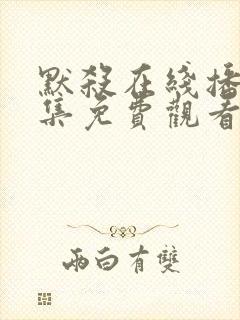 默殺在綫播
集免費觀看
兩白有雙